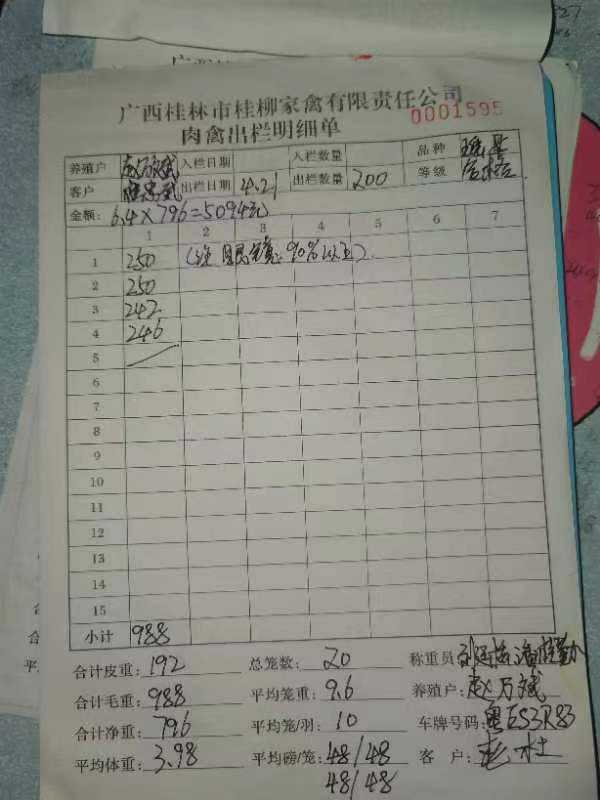 广西桂林市桂柳家禽有限责任公司
肉禽出栏明细单
0001595
养殖户 赵万斌 入栏日期 入栏数量 品种
客户 出栏日期 4.21 出栏数量 200 等级
金额: 6.4×796=5094元
1 2 3 4 5 6 7
1 250 90%以上)
2 250
3 242
4 246
5
6
7
8
9
10
11
12
13
14
15
小计 988
合计皮重: 192 总笼数: 20 称重员:
合计毛重: 988 平均笼重: 9.6 养殖户: 赵万斌
合计净重: 796 平均笼/羽: 10 车牌号码: 粤ES3R83
平均体重: 3.98 平均磅/笼: 48/48 客户: 老杜
48/48